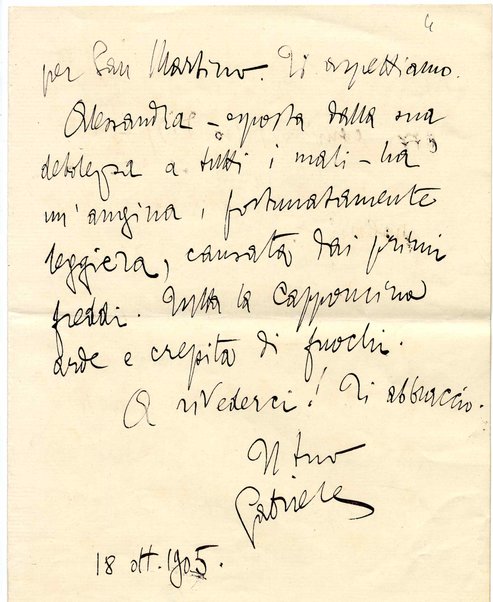 4
per San Martino. Ti aspettiamo.
Alessandra – esposta dalla sua
debolezza a tutti i mali – ha
un'angina, fortunatamente
leggiera, causata dai primi
freddi. Tutta la Capponcina
arde e crepita di fuochi.
A rivederci! Ti abbraccio.
Il tuo
Gabriele
18 ott. 1905.